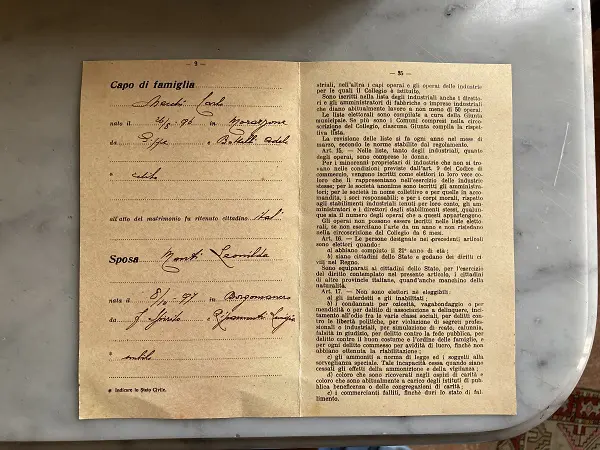 — 2 —
Capo di famiglia
Macchi Carlo
nato il 26/8-96 in Morazzone
da e
*
celibe
all'atto del matrimonio fu ritenuto cittadino ital.
Sposa Monti Leonilda
nata il 8/10-97 in Borgomanero
da e
*
nubile
* Indicare lo Stato Civile.
— 35 —
striali, nell'altra i capi operai e gli operai delle industrie
per le quali il Collegio è istituito.
Sono iscritti nella lista degli industriali anche i diretto-
ri e gli amministratori di fabbriche o imprese industriali
che diano abitualmente lavoro a non meno di 50 operai.
Le liste elettorali sono compilate a cura della Giunta
municipale. Se più sono i Comuni compresi nella circo-
scrizione del Collegio, ciascuna Giunta compila la rispet-
tiva lista.
La revisione delle liste si fa ogni anno nel mese di
marzo, secondo le norme stabilite dal regolamento.
Art. 15. - Nelle liste, tanto degli industriali, quanto
degli operai, sono comprese le donne.
Per i minorenni proprietari di industrie che non si tro-
vano nelle condizioni previste dall'art. 9 del Codice di
commercio, vengono iscritti come elettori in loro vece co-
loro che li rappresentano nell'esercizio delle industrie
stesse; per le società anonime sono iscritti gli amministra-
tori; per le società in nome collettivo e per quelle in acco-
mandita, i soci responsabili; e per i corpi morali, rispetto
agli stabilimenti industriali tenuti per loro conto, gli am-
ministratori e i direttori degli stabilimenti stessi, qualun-
que sia il numero degli operai che a questi appartengono.
Gli operai non possono essere iscritti nelle liste eletto-
rali, se non esercitano l'arte da un anno e non risiedono
nella circoscrizione del Collegio da 6 mesi.
Art. 16. - Le persone designate nei precedenti articoli
sono elettori quando:
a) abbiano compiuto il 21° anno di età;
b) siano cittadini dello Stato e godano dei diritti ci-
vili nel Regno.
Sono equiparati ai cittadini dello Stato, per l'esercizio
del diritto contemplato nel presente articolo, i cittadini
di altre provincie italiane, quand'anche manchino della
naturalità.
Art. 17. - Non sono elettori nè eleggibili:
a) gli interdetti e gli inabilitati;
b) i condannati per oziosità, vagabondaggio o per
mendicità o per delitto di associazione a delinquere, inci-
tamento all'odio fra le varie classi sociali, per delitti con-
tro le libertà politiche, per violazione di segreti profes-
sionali o industriali, per simulazione di reato, calunnia,
falsità in giudizio, per delitto contro la fede pubblica, per
delitto contro il buon costume e l'ordine delle famiglie, e
per ogni delitto commesso per avidità di lucro, finchè non
abbiano ottenuta la riabilitazione;
c) gli ammoniti a norma di legge ed i soggetti alla
sorveglianza speciale. Tale incapacità cessa quando siano
cessati gli effetti della ammonizione e della vigilanza;
d) coloro che sono ricoverati negli ospizi di carità e
coloro che sono abitualmente a carico degli istituti di pub-
blica beneficenza o delle congregazioni di carità;
e) i commercianti falliti, finchè duri lo stato di fal-
limento.